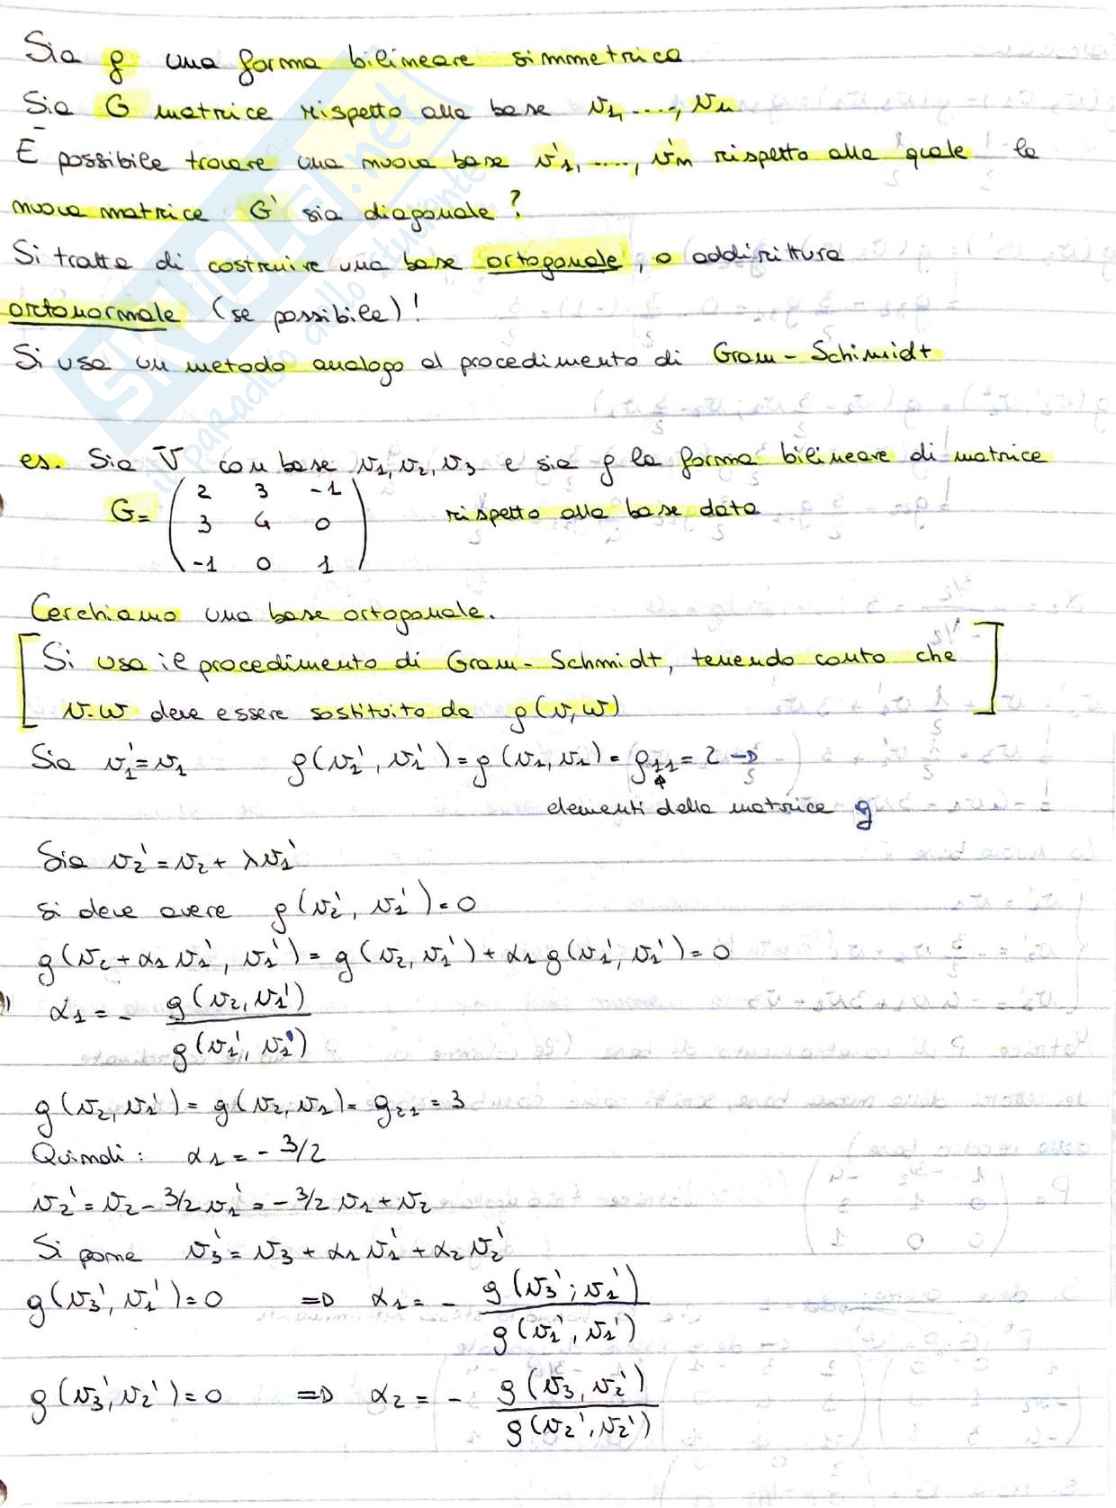 Sia g una forma bilineare simmetrica
Sia G matrice rispetto alla base v1, ...., vn
È possibile trovare una nuova base v'1, ...., v'n rispetto alla quale la
nuova matrice G' sia diagonale?
Si tratta di costruire una base ortogonale, o addirittura
ortonormale (se possibile)!
Si usa un metodo analogo al procedimento di Gram-Schimidt
es. Sia V con base v1, v2, v3 e sia g la forma bilineare di matrice
G= ( 2 3 -1
3 4 0
-1 0 1 ) rispetto alla base data
Cerchiamo una base ortogonale.
[Si usa il procedimento di Gram-Schmidt, tenendo conto che
v.w deve essere sostituito da g(v,w)]
Sia v1'=v1 g(v1', v1')=g(v1,v1)= g11=2
elementi della matrice g
Sia v2'=v2+ λv1'
si deve avere g(v2', v1')=0
g(v2+α1v1', v1')= g(v2,v1')+α1 g(v1',v1')=0
α1= - g(v2,v1') / g(v1', v1')
g(v2,v1')= g(v2,v1)= g21=3
Quindi: α1= - 3/2
v2'=v2-3/2 v1'=-3/2 v1+v2
Si pone v3'=v3+α1v1'+α2v2'
g(v3',v1')=0 => α1= - g(v3';v1') / g(v1',v1')
g(v3',v2')=0 => α2= - g(v3,v2') / g(v2',v2')
SKUOLA.net
il paradiso dello studente